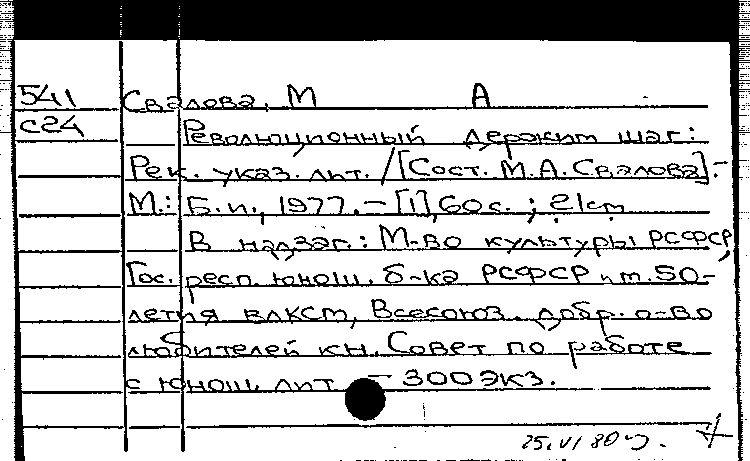 541 Свалова, М А
С24 Революционный держим шаг:
Рек. указ. лит. / [Сост. М.А. Свалова].-
М.: Б.и., 1977. - [1], 60 с. ; 21 cm
В надзаг.: М-во культуры РСФСР,
Гос. респ. юнош. б-ка РСФСР им. 50-
летия ВЛКСМ, Всесоюз. добр. о-во
любителей кн. Совет по работе
с юнош. лит. - 300 экз.
25.VI 80